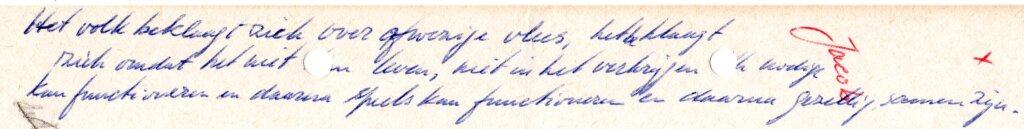 Het volk beklaagt zich over afwezige vlees, het beklaagt
zich omdat het niet kan leven, niet in het verkrijgen nodige
kan functioneren en daarna spels kan functioneren en daarna gezellig samen zijn.
Jacob